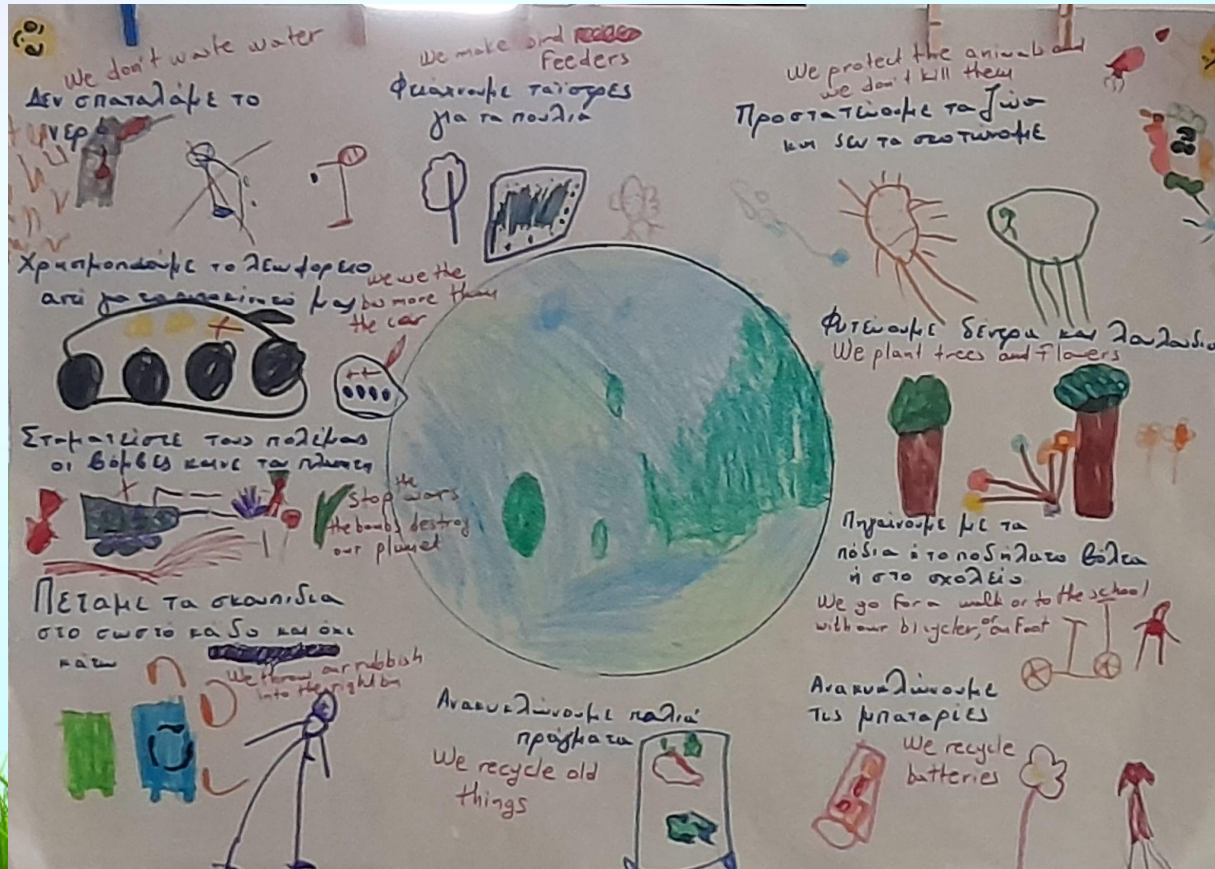 We don't waste water
Δεν σπαταλάμε το
νερό
We make bird
Feeders
Φτιάχνουμε ταΐστρες
για τα πουλιά
We protect the animals and
we don't kill them
Προστατεύουμε τα ζώα
και δεν τα σκοτώνομε
Χρησιμοποιούμε το λεωφορείο
αντί για το αυτοκίνητό μας
we use the
bus more than
the car
Φυτεύουμε δέντρα και λουλούδια
We plant trees and Flowers
Σταματείστε τους πολέμους
οι βόμβες καινε τον πλανήτη
Stop the wars
the bombs destroy
our planet
Πηγαίνουμε με τα
πόδια ή το ποδήλατο βόλτα
ή στο σχολείο
We go for a walk or to the school
with our bicycler, or on Foot
Πεταμε τα σκουπιδια
στο σωστό κάδο και όχι
κάτω
We throw our rubbish
into the right bin
Ανακυκλώνουμε παλιά
πράγματα
We recycle old
things
Ανακυκλώνουμε
τις μπαταρίες
We recycle
batteries